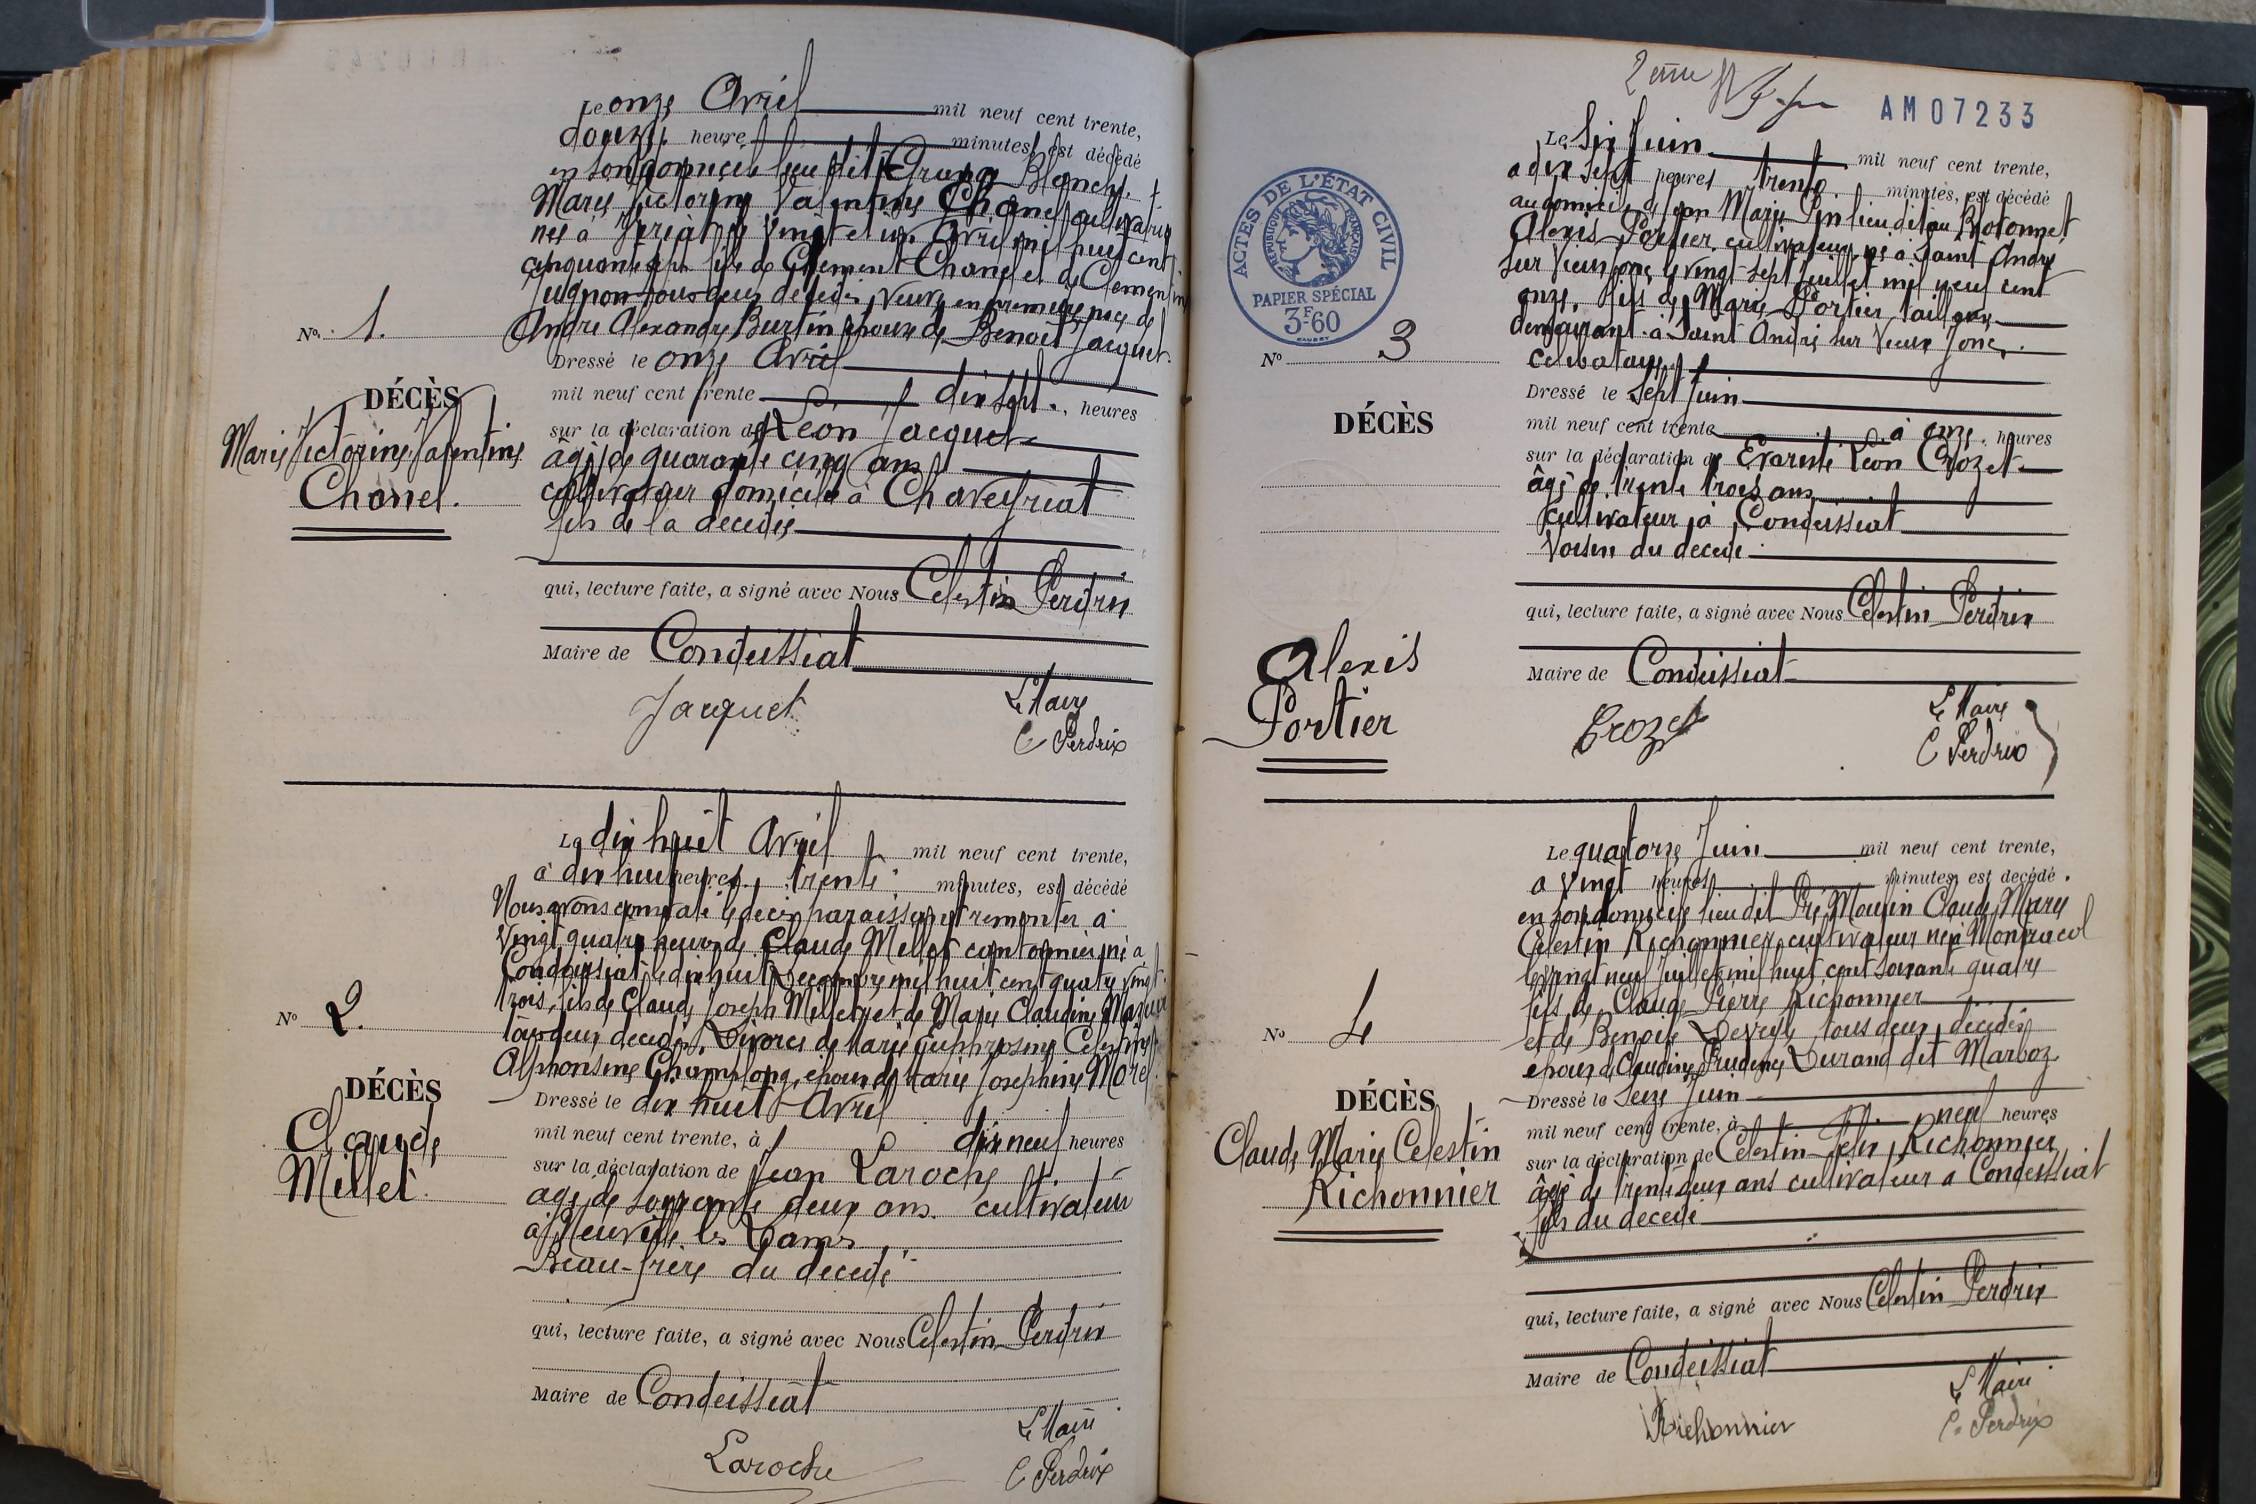 Le onze Avril mil neuf cent trente,
douze heure minutes, est décédé
en son domicile lieu dit Grange Blanche
Marie Victorine Valentine Chanel cultivatrice
née à le vingt et un Avril mil huit cent
cinquante sept fille de Clément Chanel et de Clementine
tous deux décédés, veuve en premiere noce de
André Alexandre Burtin épouse de Benoit Jacquet.
N° 1.
DÉCÈS
Marie Victorine Valentine
Chanel.
Dressé le onze Avril
mil neuf cent trente dix sept heures
sur la déclaration de Léon Jacquet
âgé de quarante cinq ans
cultivateur domicilié à Chaveyriat
fils de la décédée
qui, lecture faite, a signé avec Nous Celestin Perdrix
Maire de Condeissiat
Le Maire
Jacquet
C Perdrix
Le dix huit Avril mil neuf cent trente,
à dix huit heures trente minutes, est décédé
Nous avons constaté le décès paraissant remonter à
vingt quatre heures de Claude Millet cantonnier né a
Condeissiat le dix huit Decembre mil huit cent quatre vingt
trois, fils de Claude Joseph Millet et de Marie Claudine Mazuir
tous deux decédés, Divorcé de Marie Euphrosine Celestine
Alphonsine Champlong, époux de Marie Josephine Morel
N° 2.
DÉCÈS
Claude
Millet.
Dressé le dix huit Avril
mil neuf cent trente, à dix neuf heures
sur la déclaration de Jean Laroche
agé de soixante deux ans cultivateur
a Neuville les Dames
Beau-frère du decedé
qui, lecture faite, a signé avec Nous Celestin Perdrix
Maire de Condeissiat
Le Maire
Laroche
C Perdrix
2eme
AM07233
Le Six Juin mil neuf cent trente,
a dix sept heures trente minutes, est décédé
au domicile de Jean Marie Pin lieu dit au Brotonnet
Alexis Portier cultivateur né à Saint André
sur Vieux Jonc le vingt-sept Juillet mil neuf cent
onze, fils de Marie Portier tailleuse
demeurant à Saint André sur Vieux Jonc,
celibataire
ACTES DE L'ÉTAT CIVIL
RÉPUBLIQUE FRANÇAISE
PAPIER SPÉCIAL
3F60
N° 3
DÉCÈS
Alexis
Portier
Dressé le sept Juin
mil neuf cent trente à onze heures
sur la déclaration de Evariste Léon Crozet
âgé de trente trois ans
cultivateur à Condeissiat
Voisin du decedé
qui, lecture faite, a signé avec Nous Celestin Perdrix
Maire de Condeissiat
Le Maire
Crozet
C Perdrix
Le quatorze Juin mil neuf cent trente,
a vingt heures minutes est décédé.
en son domicile lieu dit Pré Moulin Claude Marie
Celestin Richonnier cultivateur né à Montracol
le vingt neuf Juillet mil huit cent soixante quatre
fils de Claude Pierre Richonnier
et de Benoite Deveyle tous deux decedés
époux de Claudine Prudence Durand dit Marboz
N° 4
DÉCÈS
Claude Marie Celestin
Richonnier
Dressé le Seize Juin
mil neuf cent trente, à neuf heures
sur la déclaration de Celestin Félix Richonnier
âgé de trente deux ans cultivateur a Condeissiat
fils du decedé
qui, lecture faite, a signé avec Nous Celestin Perdrix
Maire de Condeissiat
Le Maire
Richonnier
C. Perdrix